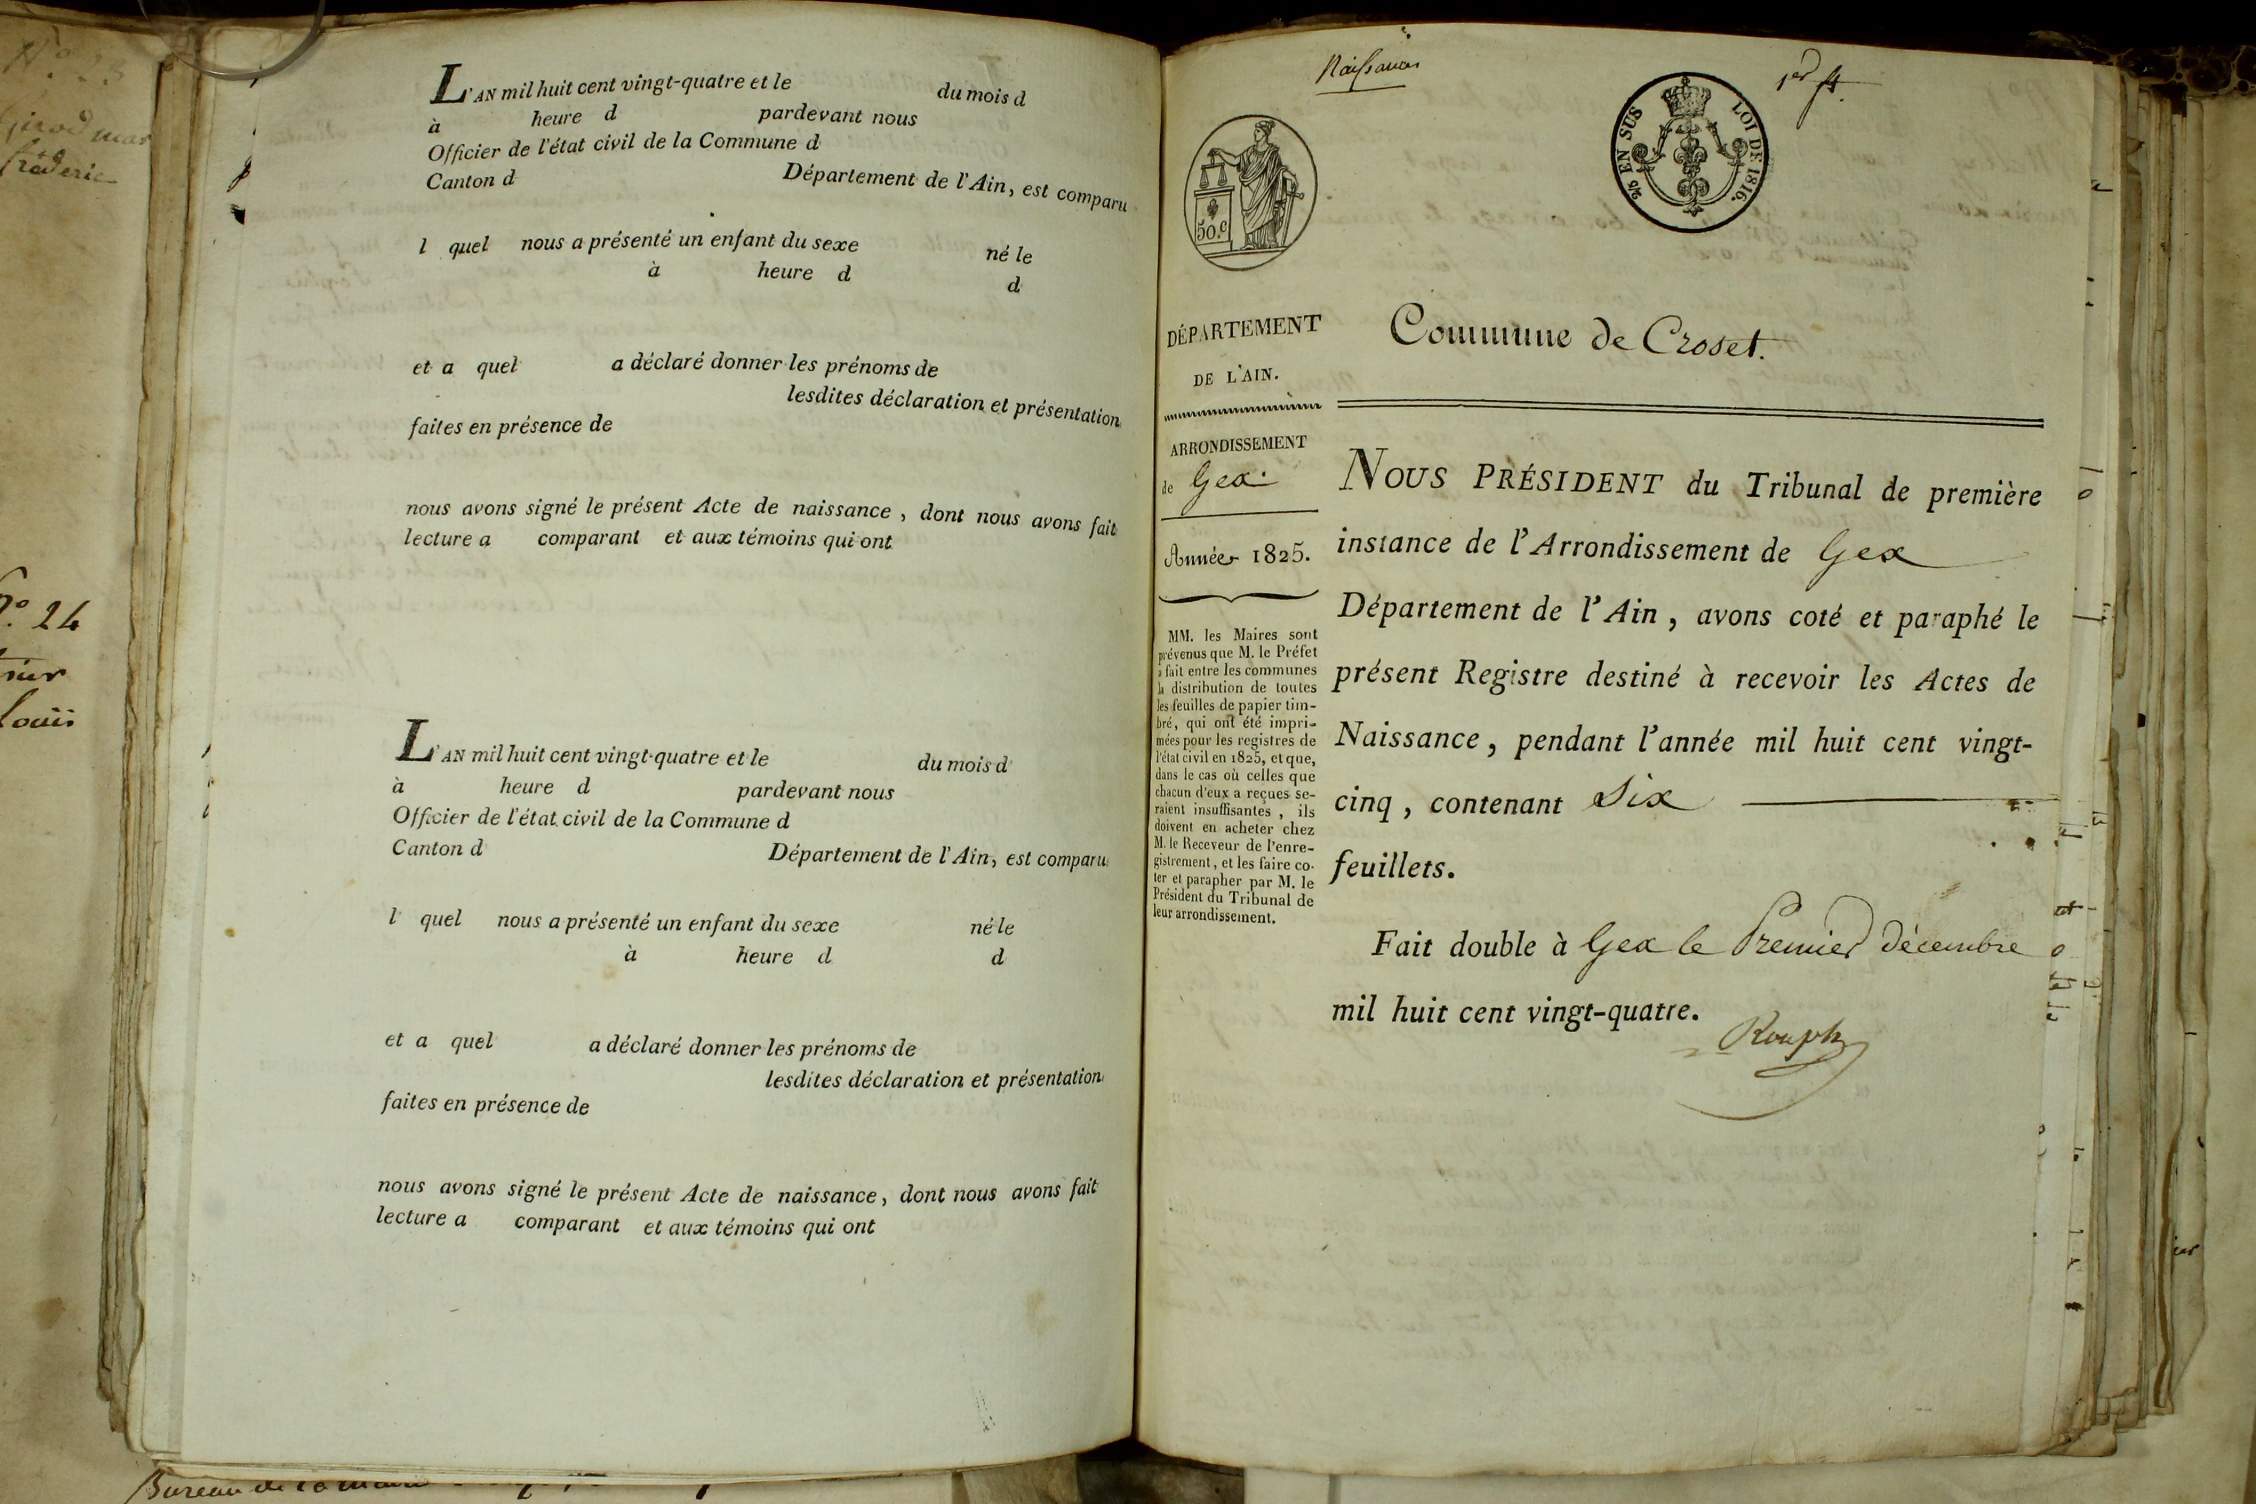 N° 23
Girod mar
fréderic
N°. 24
Louis
L'AN mil huit cent vingt-quatre et le du mois d
à heure d pardevant nous
Officier de l'état civil de la Commune d
Canton d Département de l'Ain, est comparu
l quel nous a présenté un enfant du sexe né le
à heure d d
et a quel a déclaré donner les prénoms de
lesdites déclaration et présentation
faites en présence de
nous avons signé le présent Acte de naissance, dont nous avons fait
lecture a comparant et aux témoins qui ont
L'AN mil huit cent vingt-quatre et le du mois d
à heure d pardevant nous
Officier de l'état civil de la Commune d
Canton d Département de l'Ain, est comparu
l quel nous a présenté un enfant du sexe né le
à heure d d
et a quel a déclaré donner les prénoms de
lesdites déclaration et présentation
faites en présence de
nous avons signé le présent Acte de naissance, dont nous avons fait
lecture a comparant et aux témoins qui ont
Bureau de
Naissances
1er f.
50.c
2/5 EN SUS LOI DE 1816.
DÉPARTEMENT
DE L'AIN.
ARRONDISSEMENT
de Gex.
Année 1825.
MM. les Maires sont
prévenus que M. le Préfet
a fait entre les communes
la distribution de toutes
les feuilles de papier tim-
bré, qui ont été impri-
mées pour les registres de
l'état civil en 1825, et que,
dans le cas où celles que
chacun d'eux a reçues se-
raient insuffisantes, ils
doivent en acheter chez
M. le Receveur de l'enre-
gistrement, et les faire co-
ter et parapher par M. le
Président du Tribunal de
leur arrondissement.
Commune de Croset.
NOUS PRÉSIDENT du Tribunal de première
instance de l'Arrondissement de Gex
Département de l'Ain, avons coté et paraphé le
présent Registre destiné à recevoir les Actes de
Naissance, pendant l'année mil huit cent vingt-
cinq, contenant Six
feuillets.
Fait double à Gex le Premier décembre
mil huit cent vingt-quatre.
Rouph